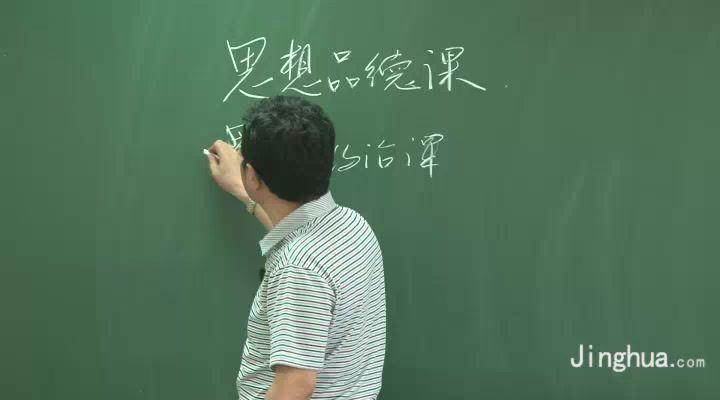 思想品德课
治课
Jinghua.com